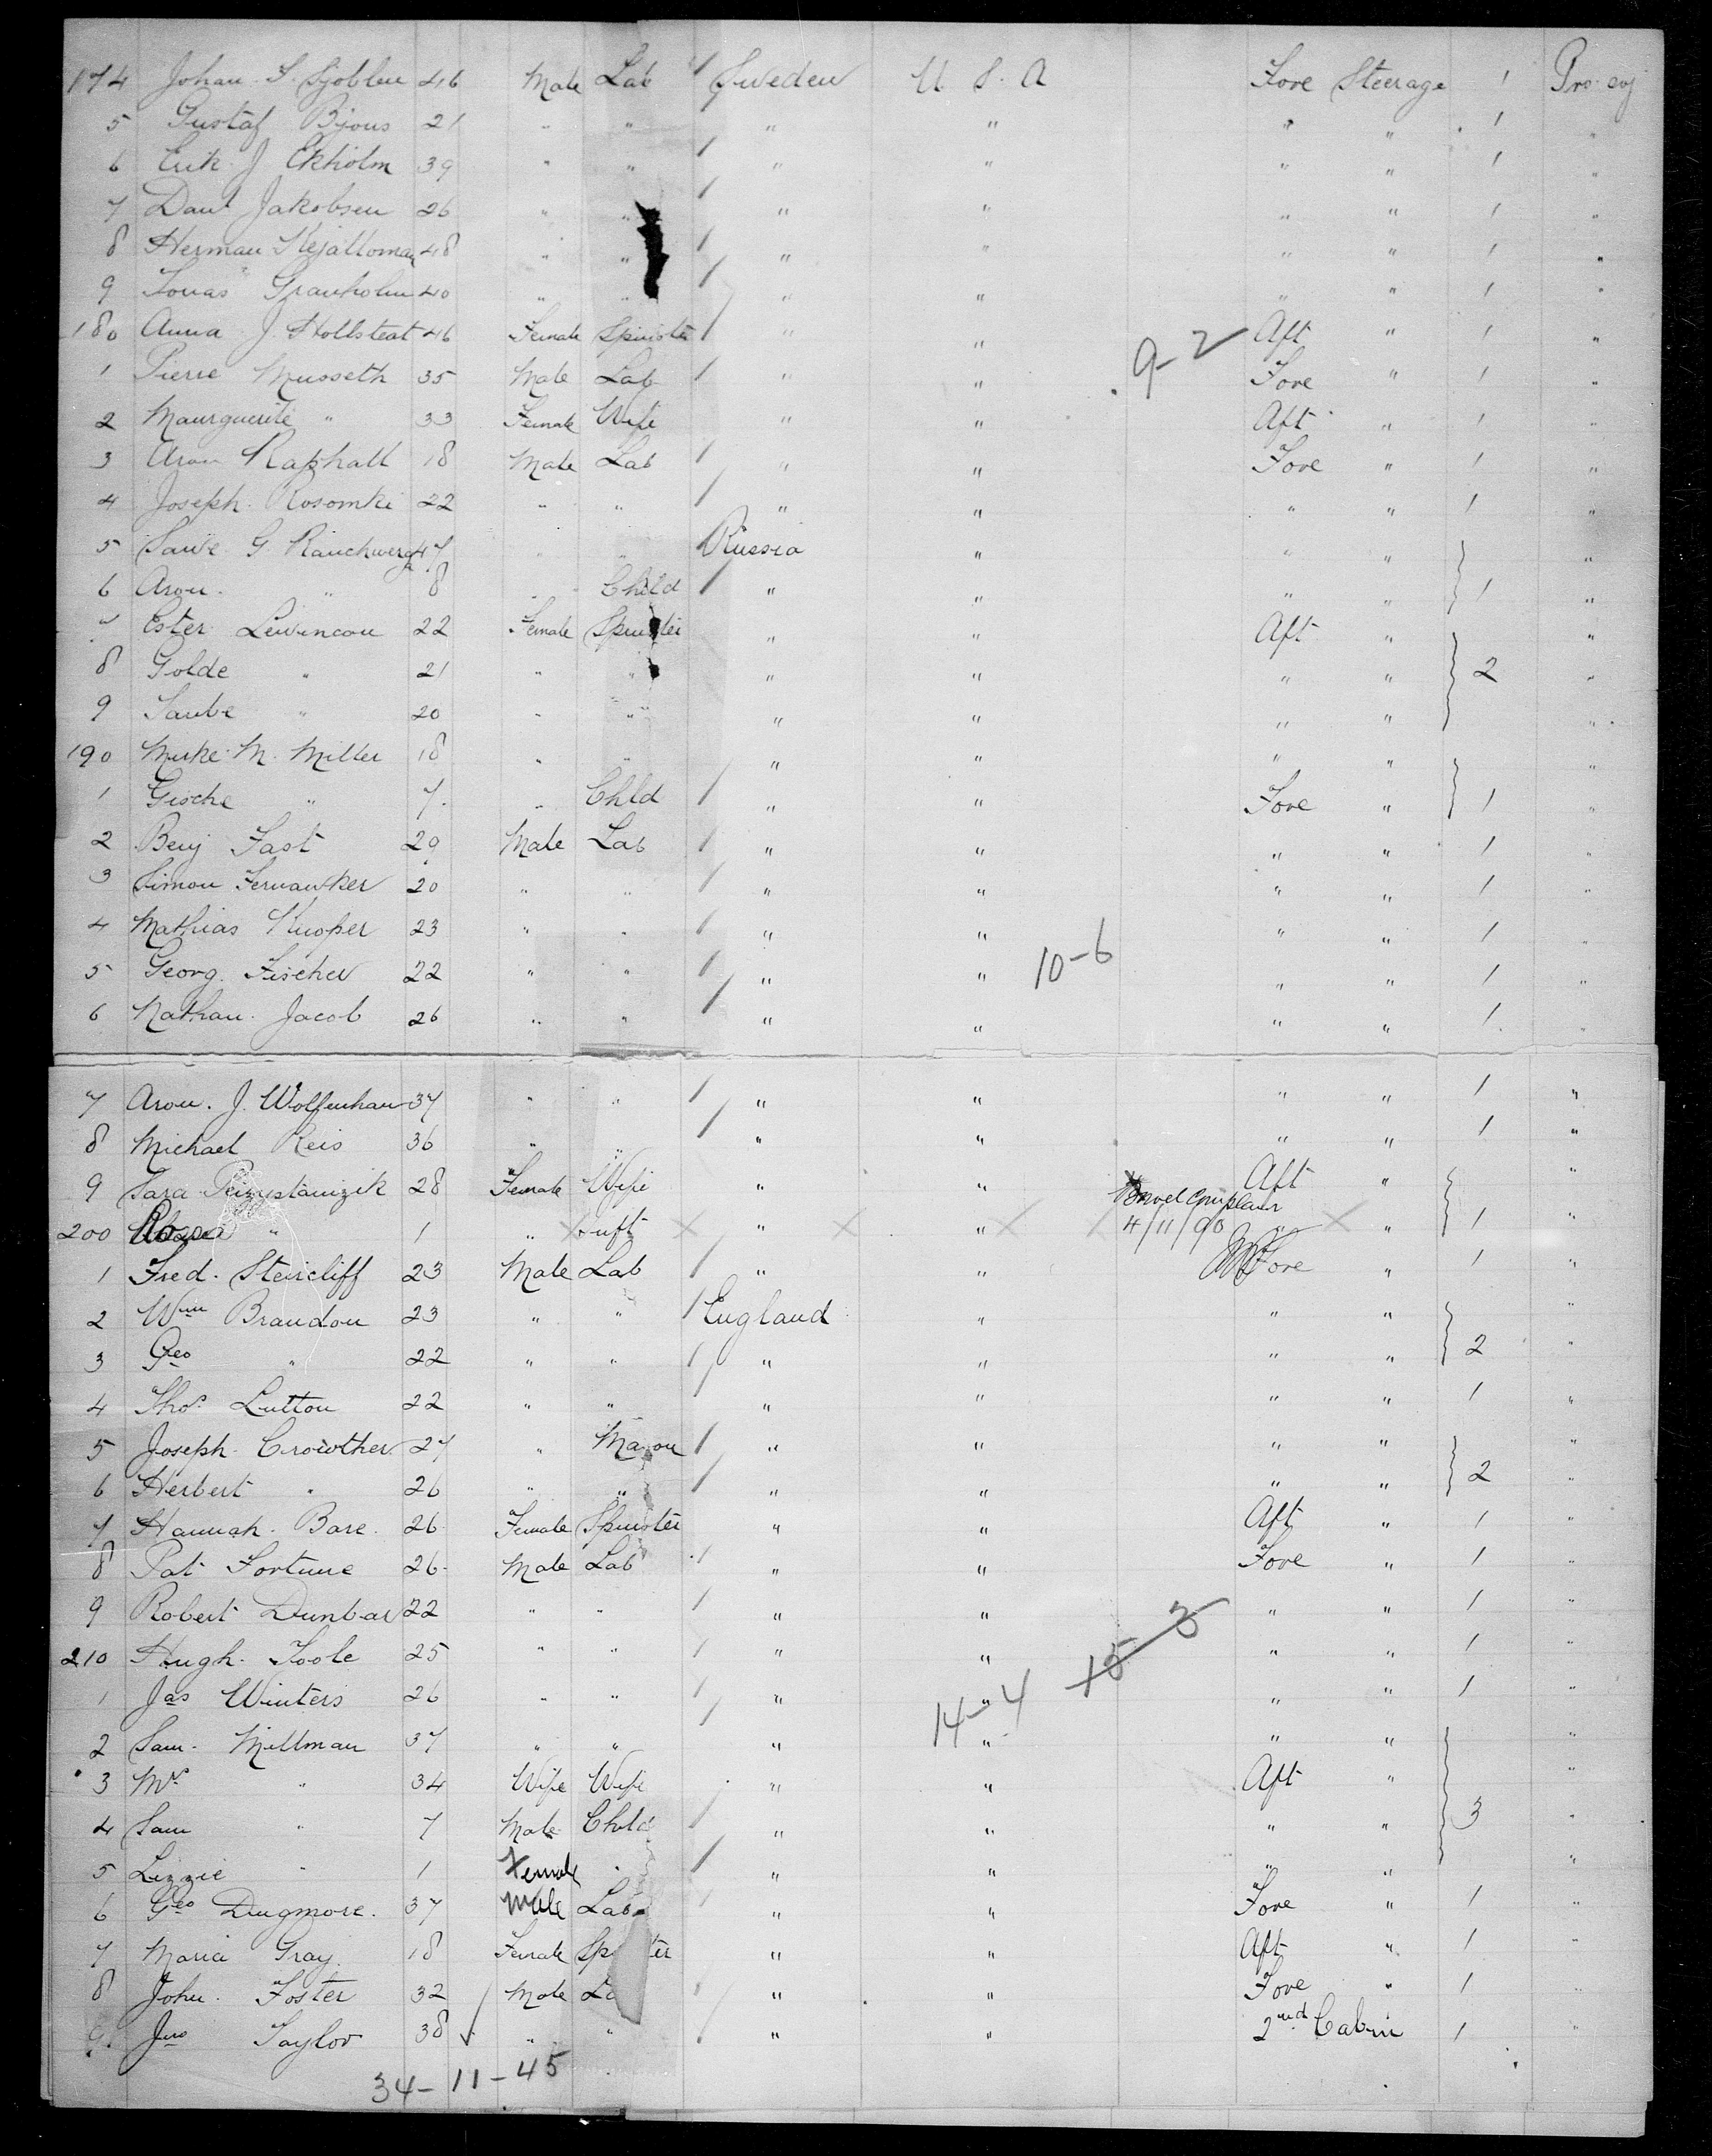 174 Johan F. Sjoblen 46 Male Lab Sweden U S. A Fore Steerage 1 Pro. coj
5 Gustaf Bjous 21 " " " " " " 1 "
6 Erik J Ekholm 39 " " " " " " 1 "
7 Danl Jakobsen 26 " " " " " " 1 "
8 Herman 48 " " " " " " 1 "
9 Jonas Granholm 40 " " " " " " 1 "
180 Anna J. Hollsteat 46 Female Spinster " " 9-2 Aft " 1 "
1 Pierre Musseth 35 Male Lab " " Fore " 1 "
2 Maurguerite " 33 Female Wife " " Aft " 1 "
3 Aron Raphall 18 Male Lab " " Fore " 1 "
4 Joseph Rosomki 22 " " " " " " 1 "
5 G Rauchwerg 47 " " Russia " " " "
6 Aron " 8 " Child " " " " 1 "
7 Ester Lewincou 22 Female Spinster " " Aft " "
8 Golde " 21 " " " " " " 2 "
9 Taube " 20 " " " " " " "
190 Mirke M. Miller 18 " " " " " " "
1 Gische " 7 " Chld " " Fore " 1 "
2 Benj Fast 29 Male Lab " " " " 1 "
3 Simon 20 " " " " " " 1 "
4 Mathias Kuoper 23 " " " " " " 1 "
5 Georg. Fischer 22 " " " " 10-6 " " 1 "
6 Nathan Jacob 26 " " " " " " 1 "
7 Aron. J. Wolfenhau 37 " " " " " " 1 "
8 Michael Reis 36 " " " " " " 1 "
9 Sara 28 Female Wife " " Aft " "
Bowel Complaint
200 Rosa " 1 " Inft " " 4/11/90 " " 1 "
1 Fred. Steircliff 23 Male Lab " " Fore " 1 "
2 Wm Brandon 23 " " England " " " "
3 Geo " 22 " " " " " " 2 "
4 Thos. Lutton 22 " " " " " " 1 "
5 Joseph Crowther 27 " Mason " " " " "
6 Herbert " 26 " " " " " " 2 "
7 Hannah Bare 26 Female Spinster " " Aft " 1 "
8 Pat Fortune 26 Male Lab " " Fore " 1 "
9 Robert Dunbar 22 " " " " 15-3 " " 1 "
210 Hugh Toole 25 " " " " " " 1 "
1 Jas Winters 26 " " " 14-4 " " " 1 "
2 Sam. Millman 37 " " " " " " "
3 Mrs " 34 Wife Wife " " Aft " "
4 Sam " 7 Male Child " " " " 3 "
5 Lizzie " 1 Female " " " " " "
6 Geo Dugmore 37 Male Lab " " Fore " 1 "
7 Maria Gray 18 Female Spinster " " Aft " 1 "
8 John Foster 32 Male Lab " " Fore " 1 "
9 Jno Taylor 38 " " " " 2nd Cabin 1 "
34-11-45